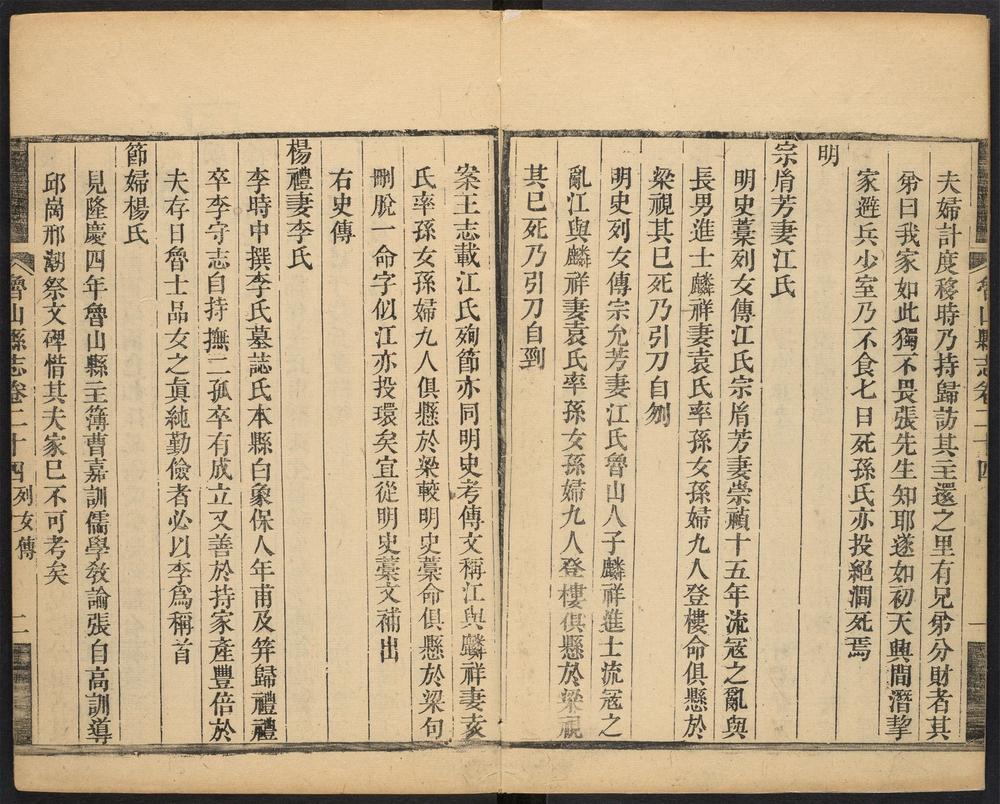 夫婦計度移時乃持歸訪其主還之里有兄弟分財者其
弟曰我家如此獨不畏張先生知耶遂如初天興間潛挈
家避兵少室乃不食七日死孫氏亦投絕澗死焉
明
宗㡯芳妻江氏
明史藁列女傳江氏宗㡯芳妻崇禎十五年流寇之亂與
長男進士麟祥妻袁氏率孫女孫婦九人登樓命俱懸於
梁視其已死乃引刀自刎
明史列女傳宗允芳妻江氏魯山人子麟祥進士流寇之
亂江與麟祥妻袁氏率孫女孫婦九人登樓俱懸於梁視
其已死乃引刀自剄
魯山縣志卷二十四
一
案王志載江氏殉節亦同明史考傳文稱江與麟祥妻袁
氏率孫女孫婦九人俱懸於梁較明史藁命俱懸於梁句
刪脫一命字似江亦投環矣宜從明史藁文補出
右史傳
楊禮妻李氏
李時中撰李氏墓誌氏本縣白象保人年甫及笄歸禮禮
卒李守志自持撫二孤卒有成立又善於持家產豐倍於
夫存日魯士品女之眞純勤儉者必以李爲稱首
節婦楊氏
見隆慶四年魯山縣主簿曹嘉訓儒學敎諭張自高訓導
邱崗邢湖祭文碑惜其夫家已不可考矣
魯山縣志卷二十四 列女傳
二